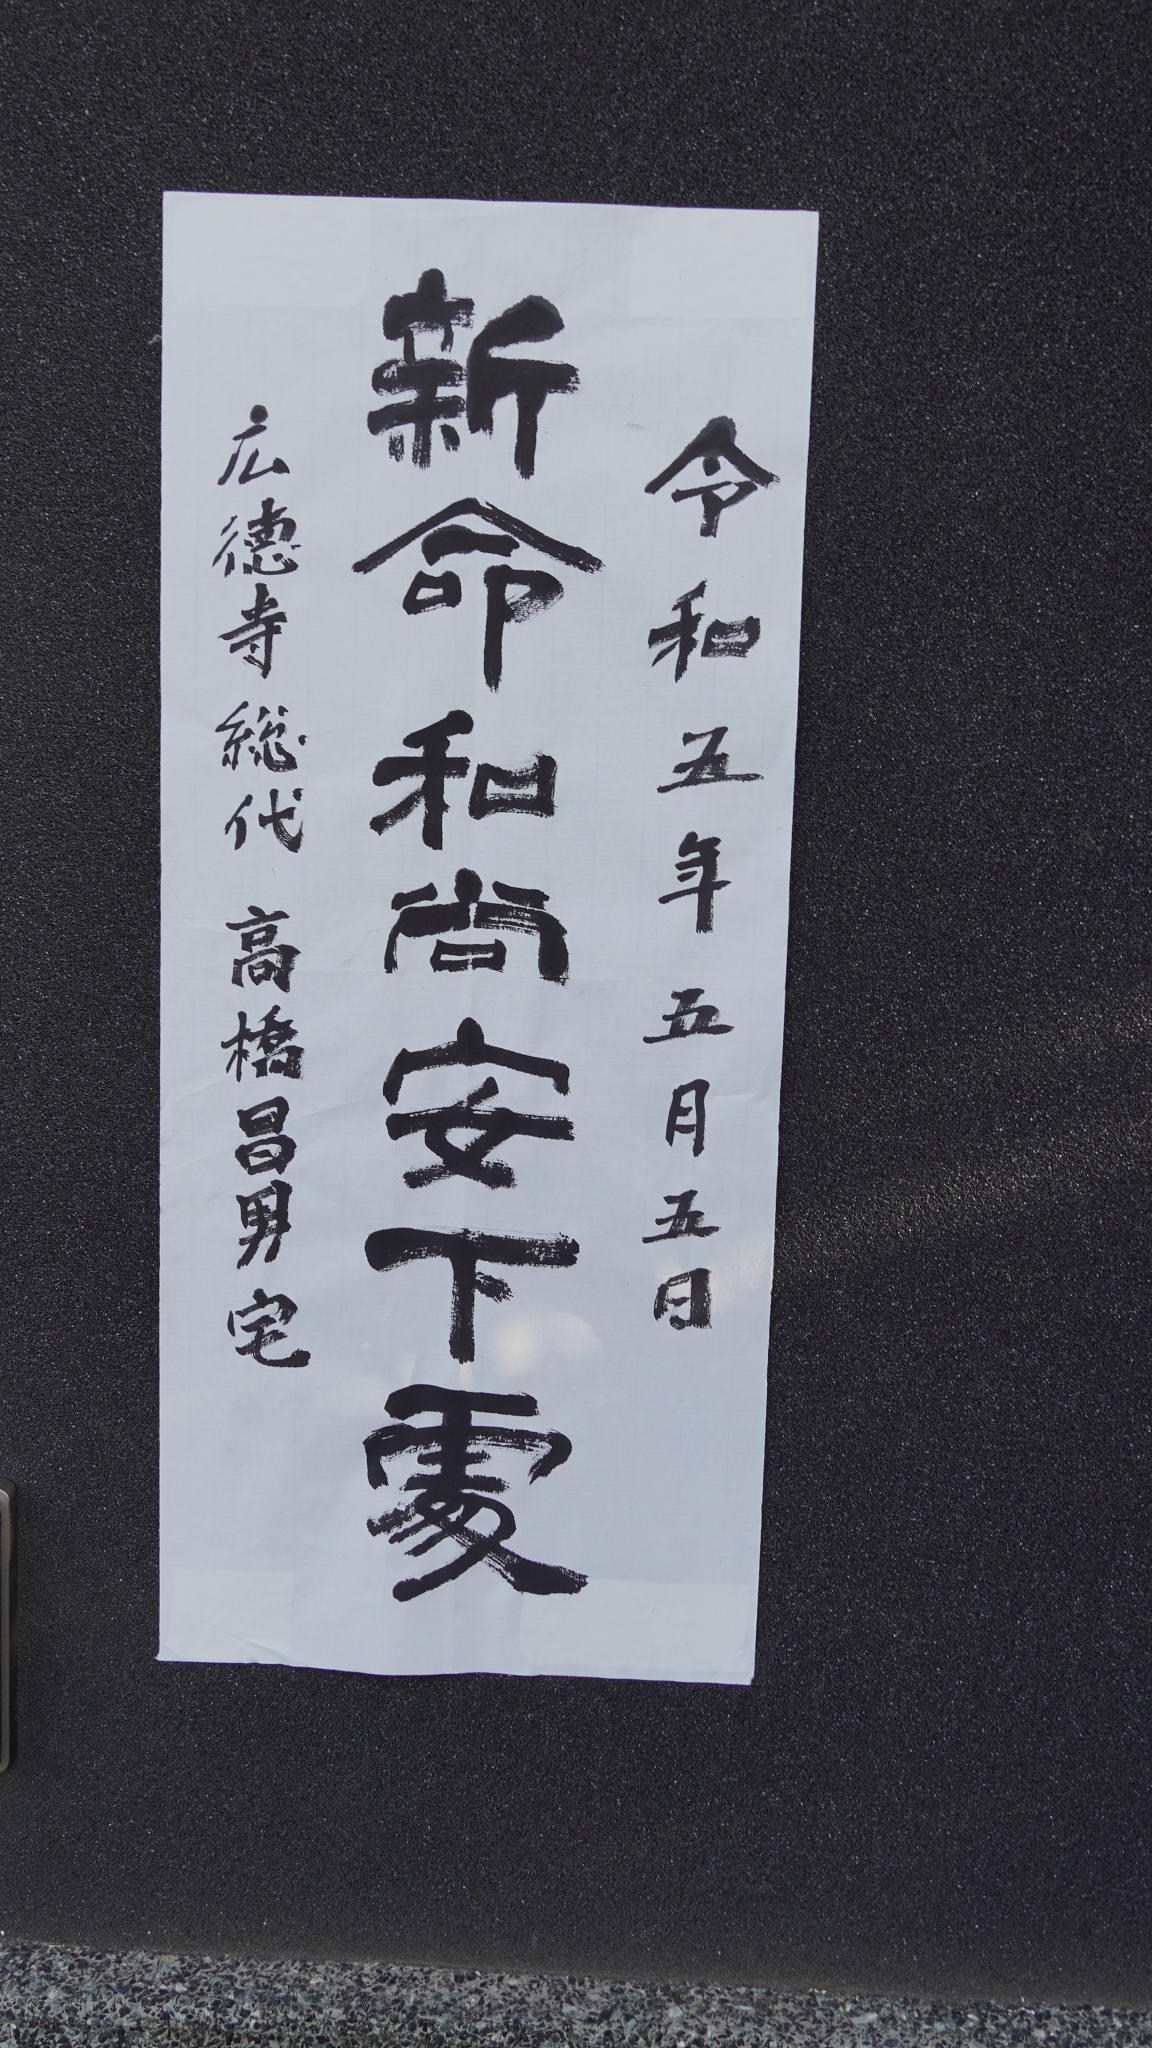 令和五年五月五日
新命和尚安下處
広徳寺総代 高橋昌男宅